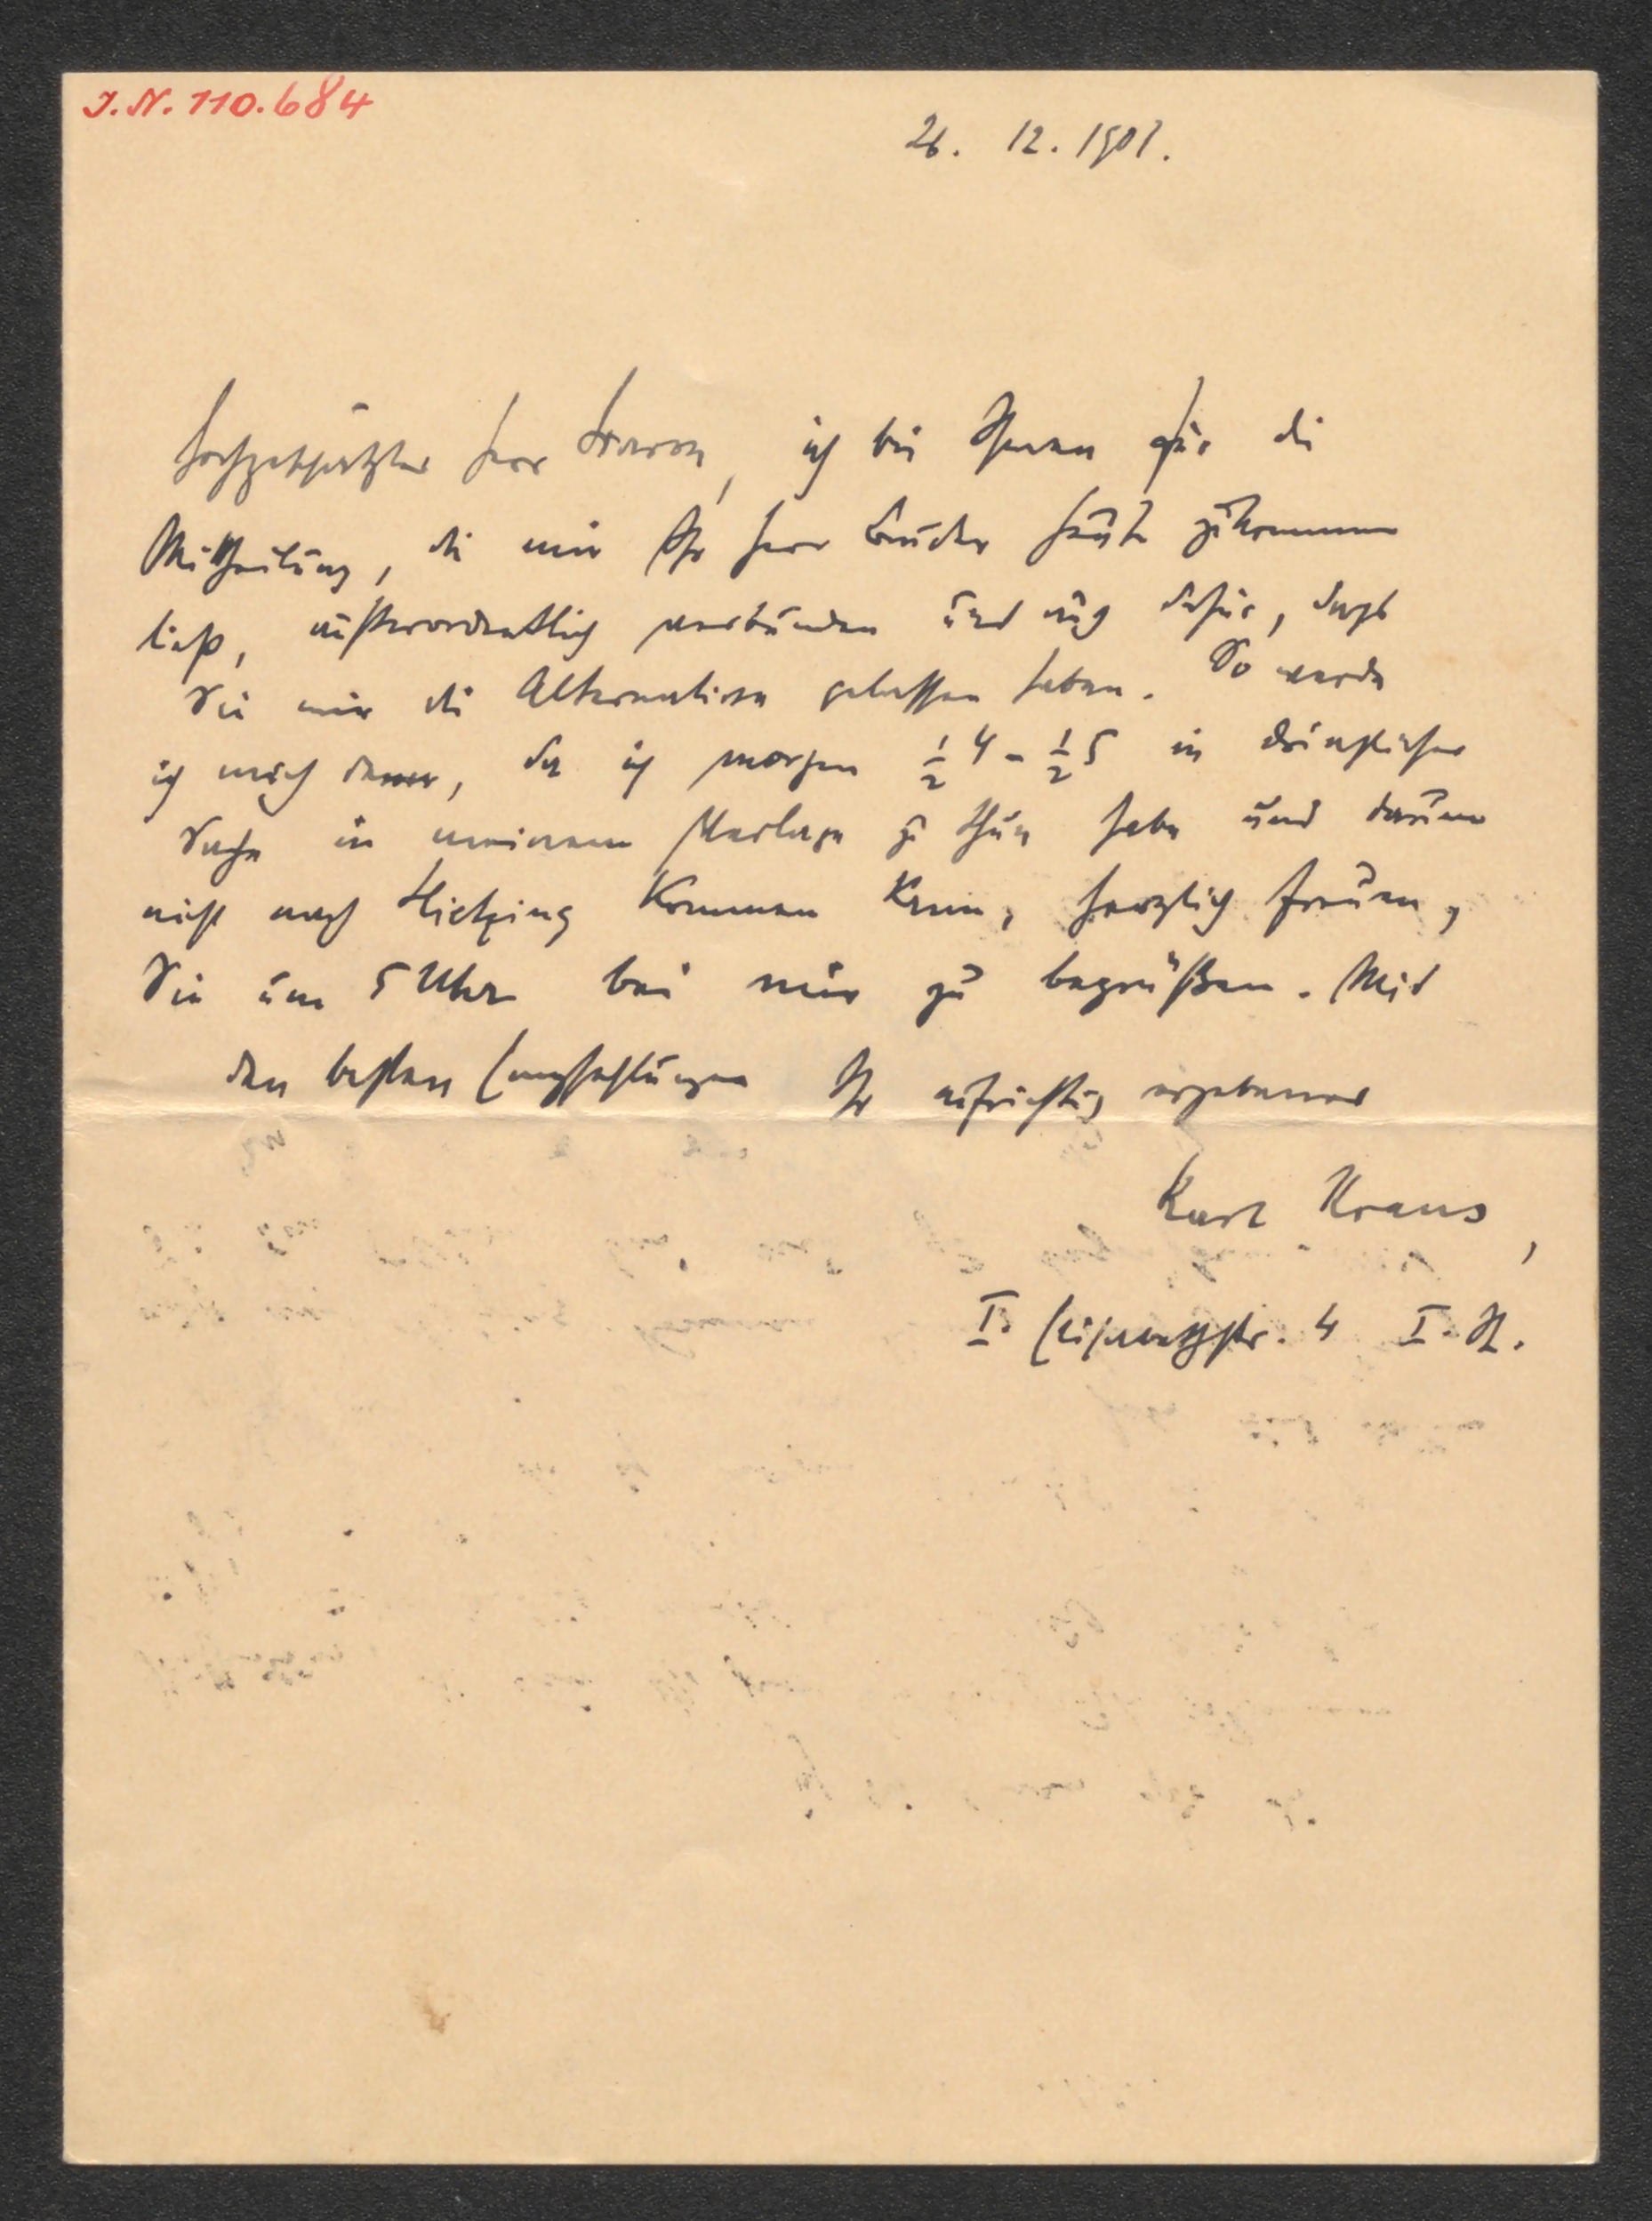 I.N. 110.684
26. 12. 1901.
Hochgeschätzter Herr Baron, ich bin Ihnen für die
Mittheilung, die mir Ihr Herr Bruder heute zukommen
ließ, außerordentlich verbunden und auch dafür, dass
Sie mir die Alternative gelassen haben. So werde
ich mich denn, da ich morgen ½4 - ½5 in dringlicher
Sache in meinem Verlage zu thun habe und darum
nicht nach Hietzing kommen kann, herzlich freuen,
Sie um 5 Uhr bei mir zu begrüßen. Mit
den besten Empfehlungen Ihr aufrichtig ergebener
Karl Kraus,
I. Elisabethstr. 4 I. St.